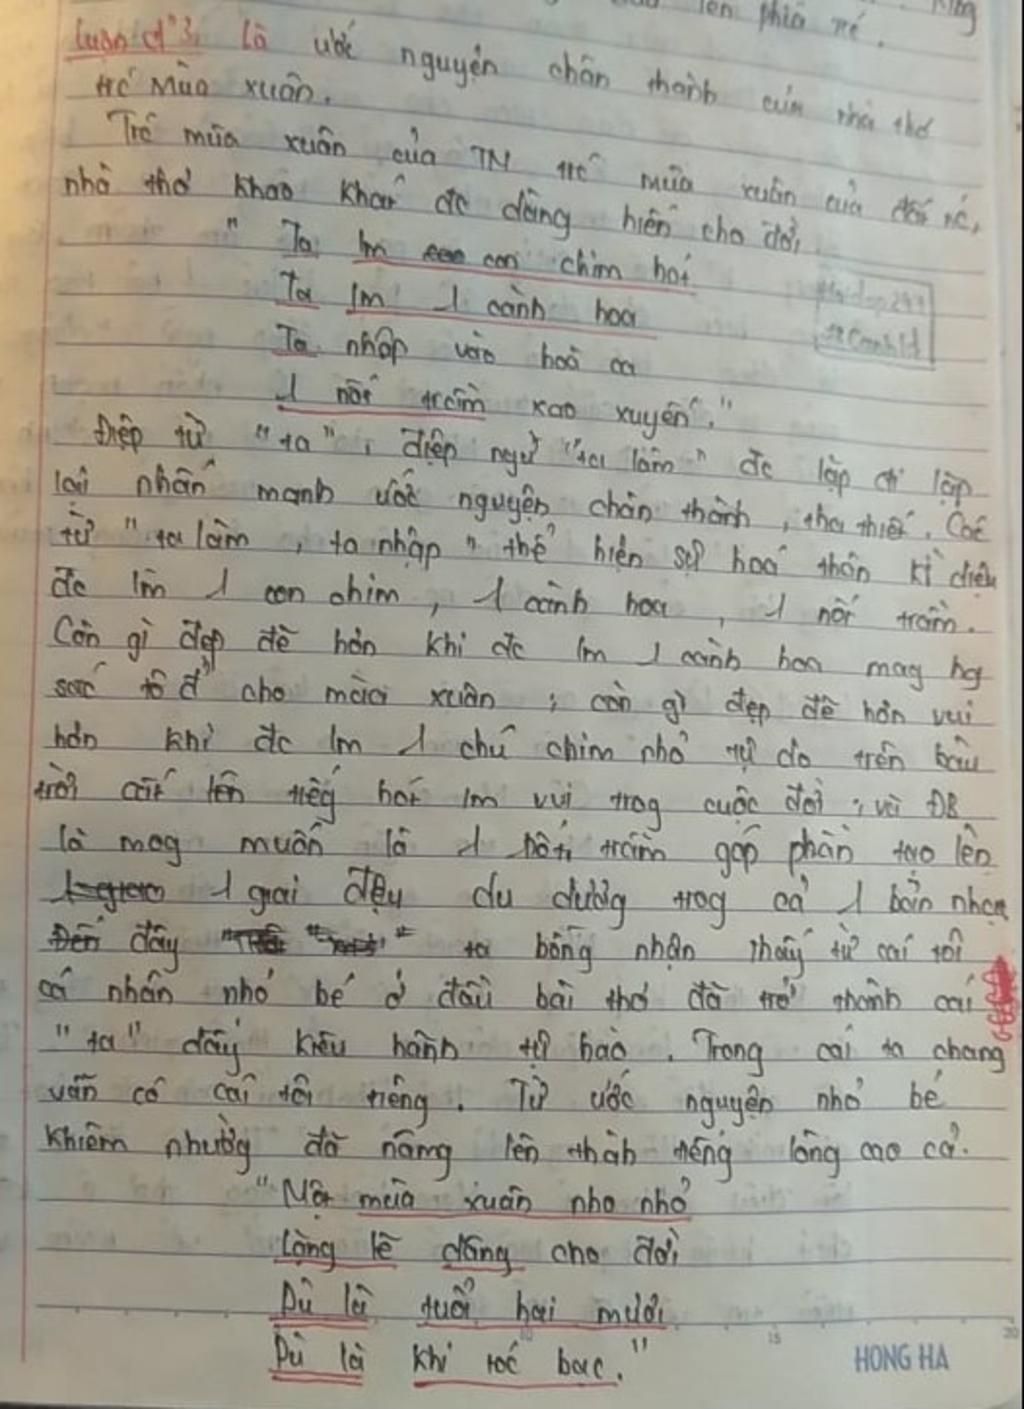 lên phía
Luận đ° 3. Là ước nguyện chân thành của nhà thơ
trc mùa xuân.
Trc mùa xuân của TN trc mùa xuân của đất nc,
nhà thơ khao khát đc dâng hiến cho đời.
" Ta lm con chim hót
Ta lm 1 cành hoa
Ta nhập vào hoà ca
1 nốt trầm xao xuyến."
Điệp từ "ta", điệp ngữ "ta làm" đc lặp đi lặp
lại nhấn mạnh ước nguyện chân thành, tha thiết. Các
từ "ta làm, ta nhập" thể hiện sự hoá thân kì diệu
đc lm 1 con chim, 1 cành hoa, 1 nốt trầm.
Còn gì đẹp đẽ hơn khi đc lm 1 cành hoa mag hg
sắc tô đ' cho mùa xuân; còn gì đẹp đẽ hơn vui
hơn khi đc lm 1 chú chim nhỏ tự do trên bầu
trời cất lên tiếg hót lm vui trog cuộc đời; và ĐB
là mog muốn là 1 nốt trầm góp phần tạo lên
1 giai điệu du dương trog cả 1 bản nhạc
Đến đây ta bỗng nhận thấy từ cái tôi
cá nhân nhỏ bé ở đầu bài thơ đã trở thành cái
"ta" đầy kiêu hãnh tự hào. Trong cái ta chung
vẫn có cái tôi riêng. Từ ước nguyện nhỏ bé
khiêm nhường đã nâng lên thàh tiếng lòng cao cả.
"Một mùa xuân nho nhỏ
Lặng lẽ dâng cho đời
Dù là tuổi hai mươi
Dù là khi tóc bạc."
10 15 20
HONG HA